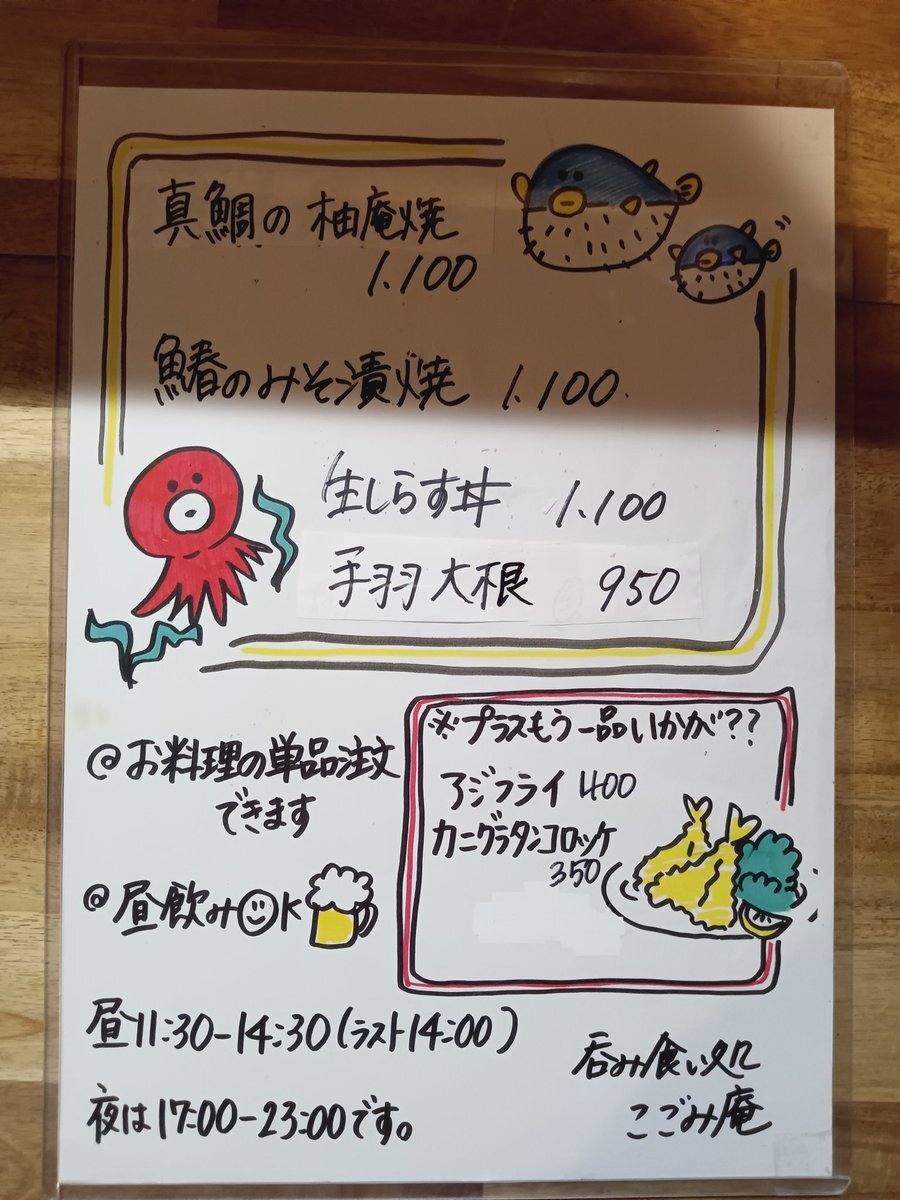 真鯛の柚庵焼
1.100
鰆のみそ漬焼 1.100
生しらす丼 1.100
手羽大根 950
※プラスもう一品いかが??
アジフライ 400
カニグラタンコロッケ
350
@お料理の単品注文
できます
@昼飲み☺K
昼11:30-14:30(ラスト14:00)
夜は17:00-23:00です。
呑み食い処
こごみ庵